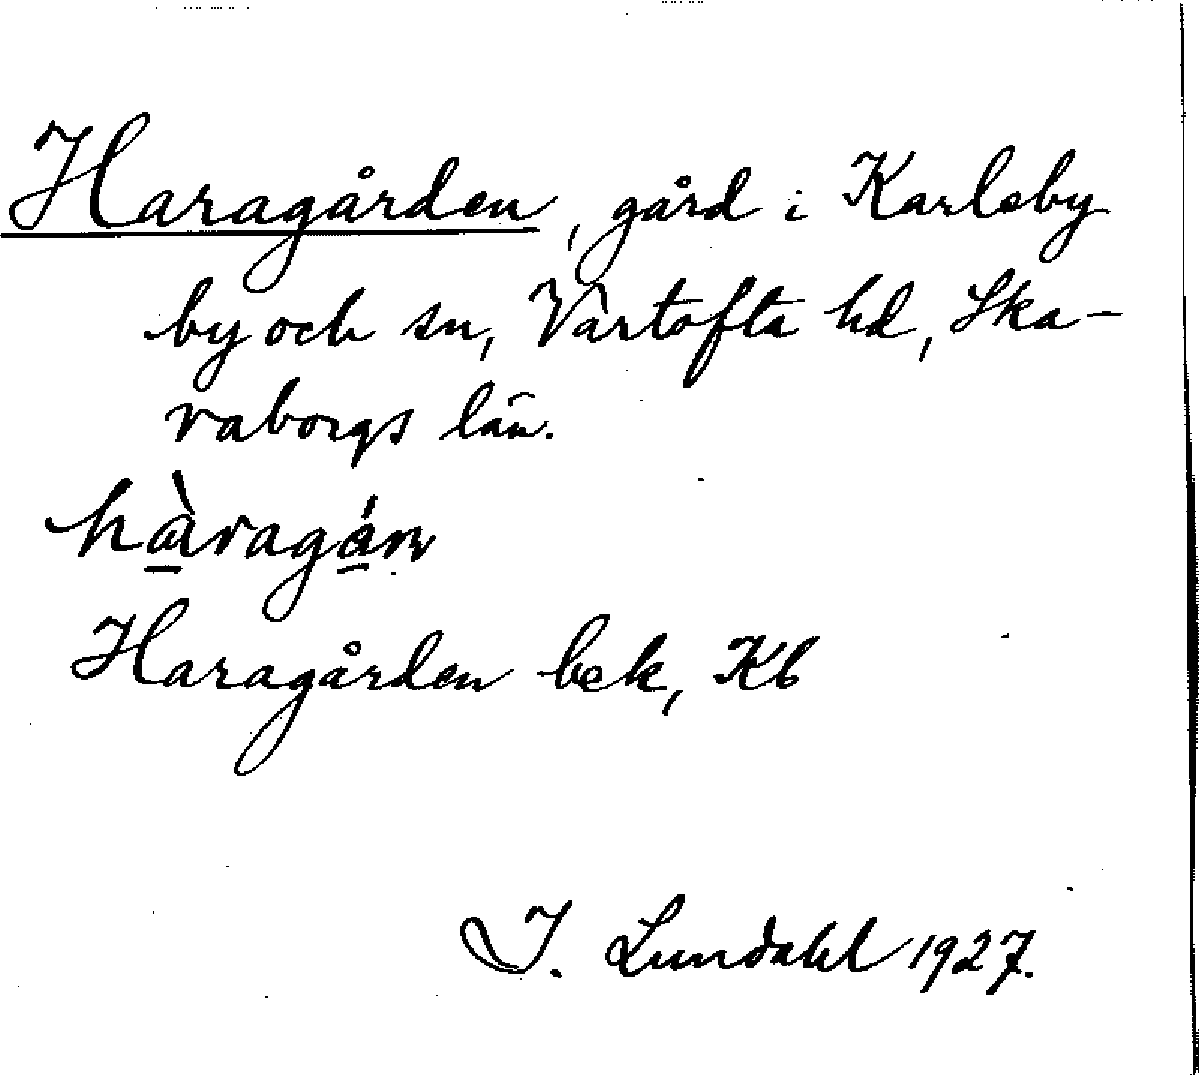 Haragården, gård i Karleby
by och sn, Vartofta hd, Ska-
raborgs län.
Haragården bek, Kb
I. Lundahl 1927.